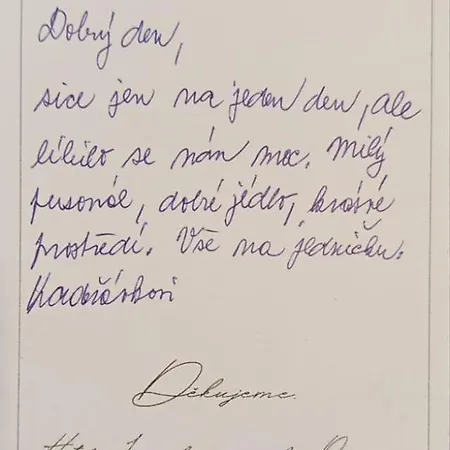 Dobrý den,
sice jen na jeden den, ale
líbilo se nám moc. Milý
personál, dobré jídlo, krásné
prostředí. Vše na jedničku.
Děkujeme.